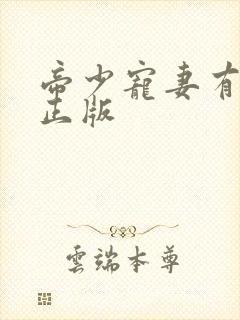 帝少寵妻有
正版
雲端本尊